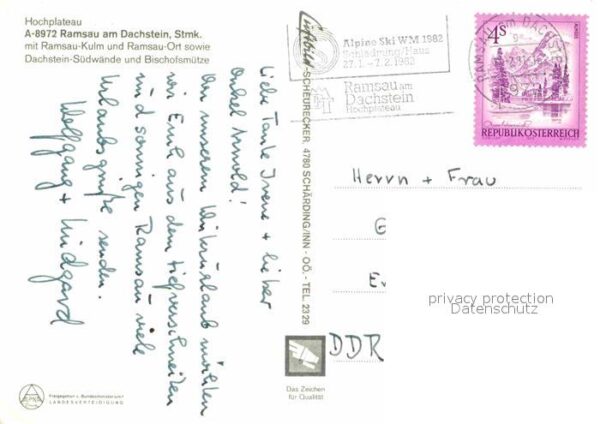 Hochplateau
A-8972 Ramsau am Dachstein, Stmk.
mit Ramsau-Kulm und Ramsau-Ort sowie
Dachstein-Südwände und Bischofsmütze
Liebe Tante Irene + lieber
Onkel Arnold!
Von unserem Winterurlaub möchten
wir Euch aus dem tiefverschneiten
und sonnigen Ramsau viele
Urlaubsgrüße senden.
Wolfgang + Luidgard
LUFTBILD-SCHEURECKER, 4780 SCHÄRDING/INN - OÖ. - TEL. 2329
Alpine Ski WM 1982
Schladming/Haus
27.1. - 7.2.1982
Ramsau am
Dachstein
Hochplateau
RAMSAU am DACHSTEIN
4 S
REPUBLIK ÖSTERREICH
Herrn + Frau
G
E
DDR
privacy protection
Datenschutz
Das Zeichen
für Qualität
Freigegeben v. Bundesministerium f.
LANDESVERTEIDIGUNG